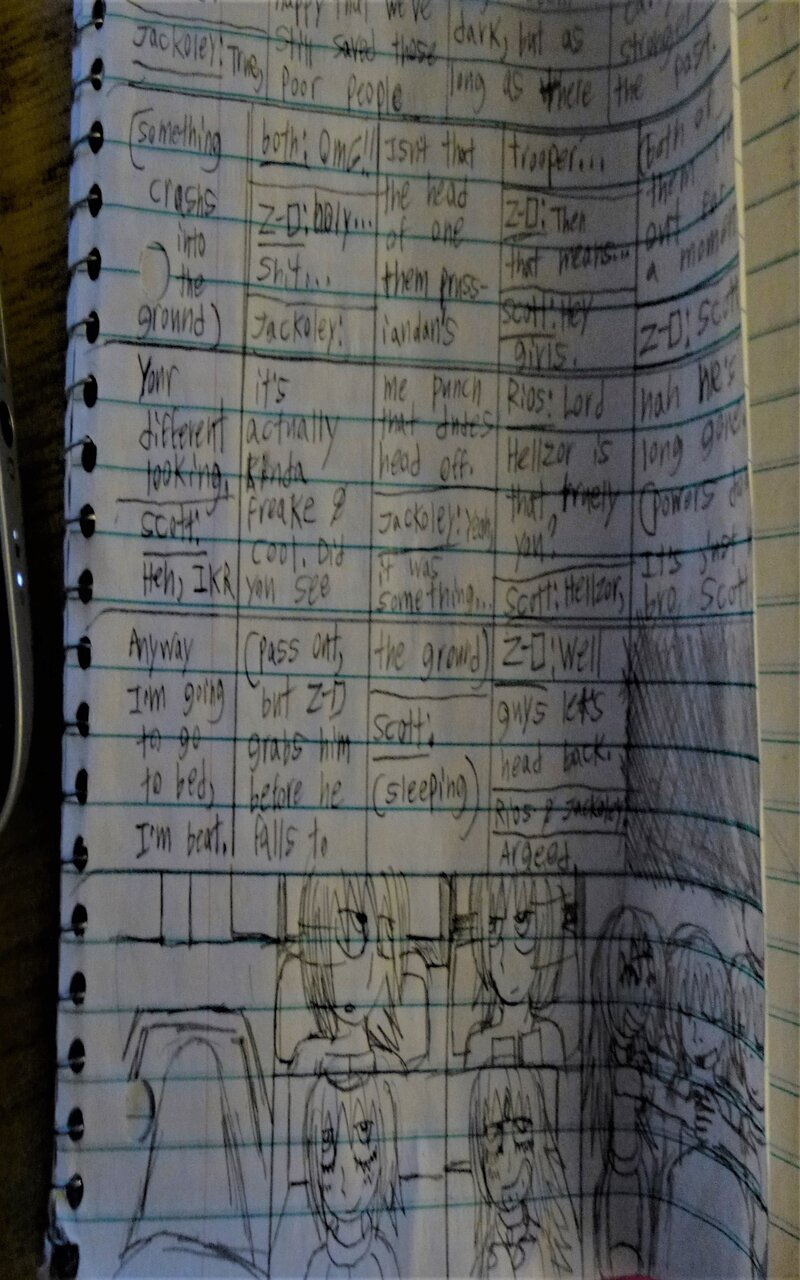 happy that we've
Jackoley: True,
still saved those
poor people
dark, but as
long as there
stronger
the past.
(something
crashs
into
the
ground)
both: OMG!!
Z-D: holy...
shit...
Jackoley:
Isn't that
the head
of one
them pruss-
iandan's
trooper...
Z-D: Then
that means...
Scott: Hey
girls.
(both of
them
out for
a moment
Z-D: Scott
Your
different
looking.
Scott:
Heh, IKR
it's
actually
kinda
freake &
cool. Did
you see
me punch
that dudes
head off.
Jackoley: Yeah,
it was
something...
Rios: Lord
Hellzor is
that truely
you?
Scott: Hellzor,
nah he's
long gone.
(powers
It's just
bro, Scott
Anyway
I'm going
to go
to bed,
I'm beat.
(pass out,
but Z-D
grabs him
before he
falls to
the ground)
Scott:
(sleeping)
Z-D: Well
guys let's
head back.
Rios & Jackoley:
Argeed